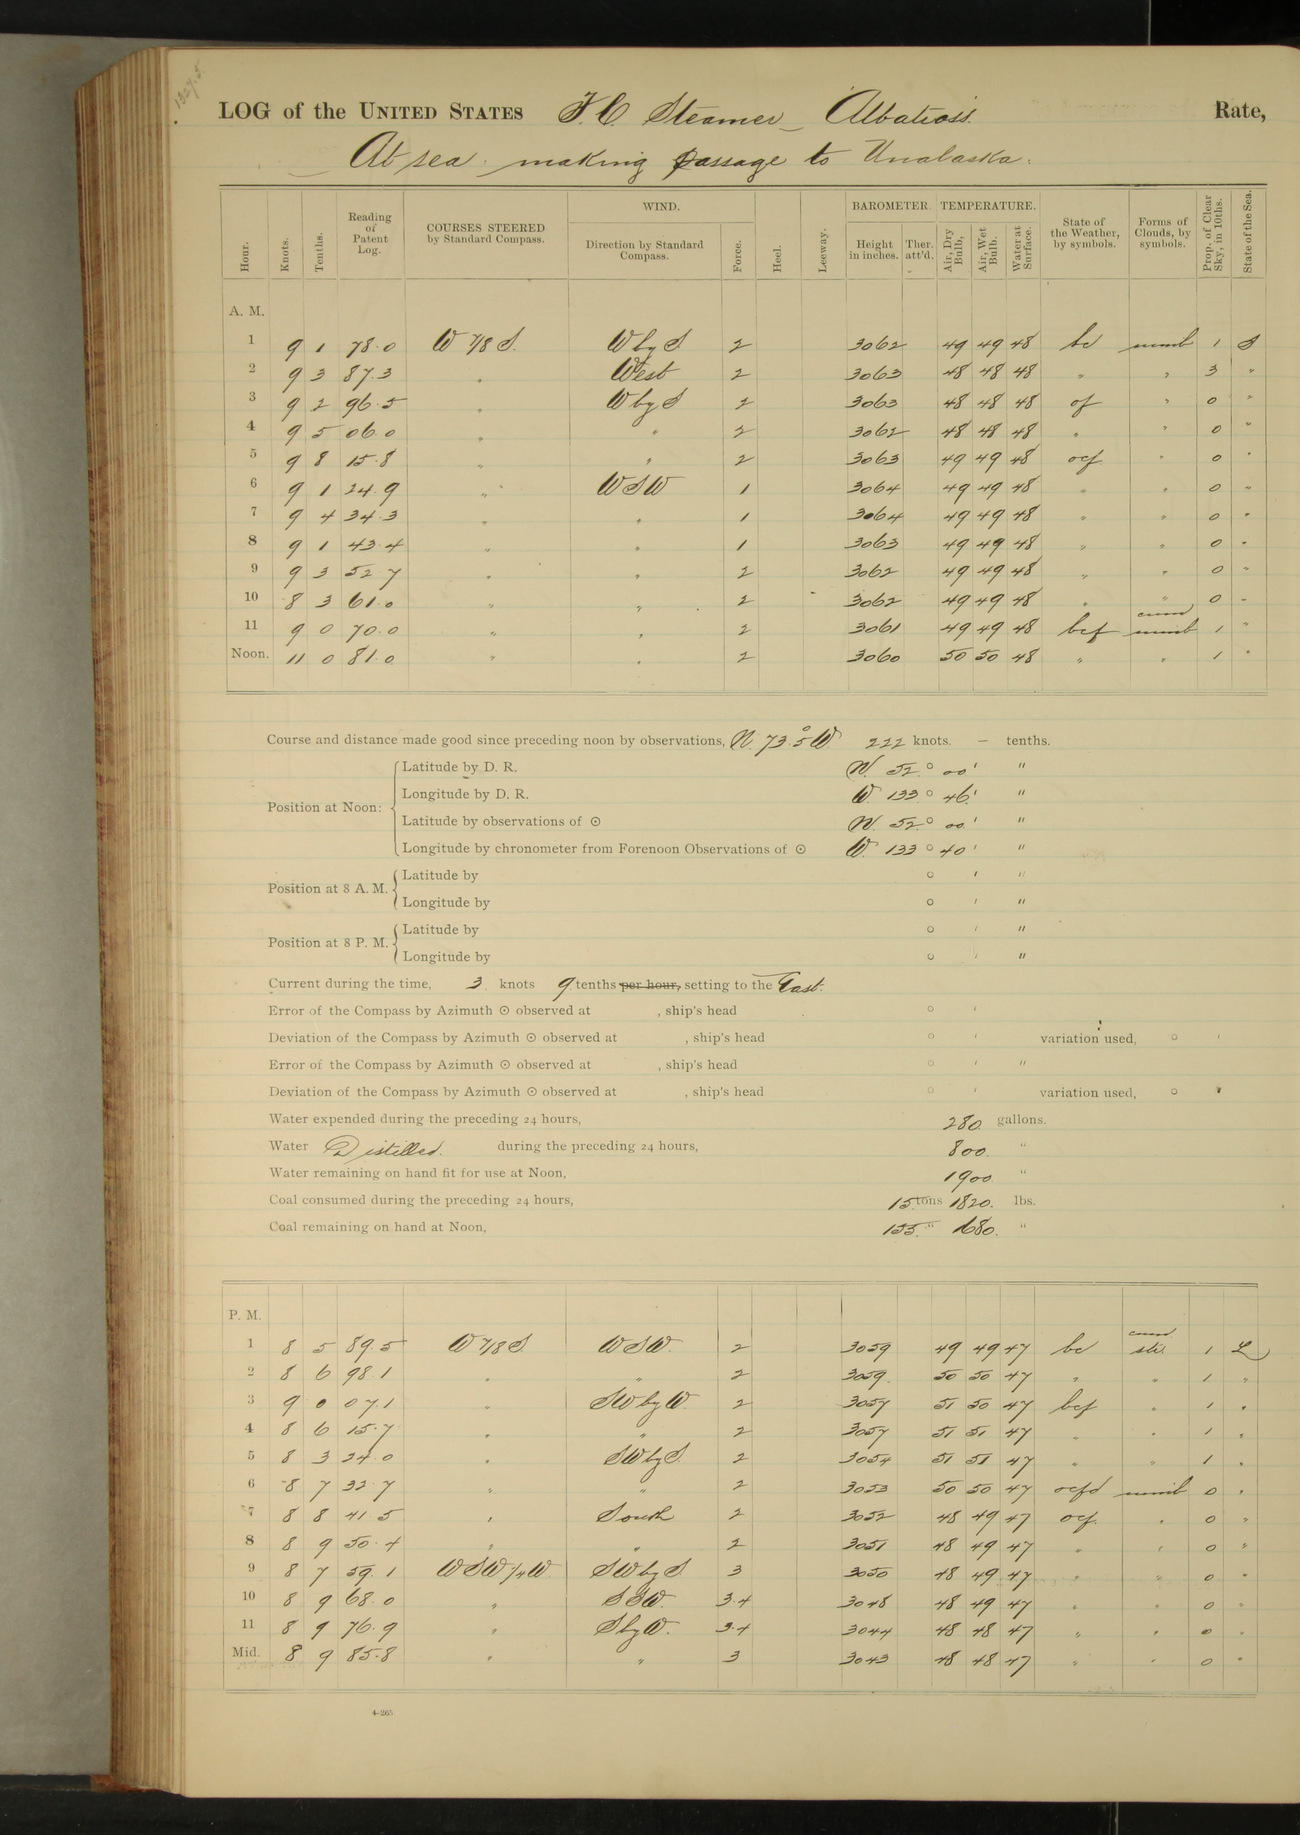 1327.5.
LOG of the UNITED STATES F. C. Steamer Albatross. Rate,
At sea making passage to Unalaska.
Hour. Knots. Tenths. Reading of Patent Log. COURSES STEERED by Standard Compass. WIND. Direction by Standard Compass. Force. Heel. Leeway. BAROMETER. Height in inches. Ther. att'd. TEMPERATURE. Air, Dry Bulb, Air, Wet Bulb. Water at Surface. State of the Weather, by symbols. Forms of Clouds, by symbols. Prop. of Clear Sky, in 10ths. State of the Sea.
A. M.
1 9 1 78.0 W 7/8 S. W by S 2 3062 49 49 48 bc nimb 1 S
2 9 3 87.3 " West 2 3063 48 48 48 " " 3 "
3 9 2 96.5 " W by S 2 3063 48 48 48 of " 0 "
4 9 5 06.0 " " 2 3062 48 48 48 " " 0 "
5 9 8 15.8 " " 2 3063 49 49 48 ocf " 0 "
6 9 1 24.9 " WSW 1 3064 49 49 48 " " 0 "
7 9 4 34.3 " " 1 3064 49 49 48 " " 0 "
8 9 1 43.4 " " 1 3063 49 49 48 " " 0 "
9 9 3 52.7 " " 2 3062 49 49 48 " " 0 "
10 8 3 61.0 " " 2 3062 49 49 48 " " 0 "
11 9 0 70.0 " " 2 3061 49 49 48 bcf cum nimb 1 "
Noon. 11 0 81.0 " " 2 3060 50 50 48 " " 1 "
Course and distance made good since preceding noon by observations, N. 73.°5 W 222 knots. — tenths.
Position at Noon:
Latitude by D. R. N. 52° 00' "
Longitude by D. R. W. 133° 46' "
Latitude by observations of ☉ N. 52° 00' "
Longitude by chronometer from Forenoon Observations of ☉ W. 133° 40' "
Position at 8 A. M.
Latitude by ° ' "
Longitude by ° ' "
Position at 8 P. M.
Latitude by ° ' "
Longitude by ° ' "
Current during the time, 3 knots 9 tenths per hour, setting to the East.
Error of the Compass by Azimuth ☉ observed at , ship's head ° '
Deviation of the Compass by Azimuth ☉ observed at , ship's head ° ' variation used, ° '
Error of the Compass by Azimuth ☉ observed at , ship's head ° ' "
Deviation of the Compass by Azimuth ☉ observed at , ship's head ° ' variation used, ° '
Water expended during the preceding 24 hours, 280 gallons.
Water Distilled. during the preceding 24 hours, 800 "
Water remaining on hand fit for use at Noon, 1900 "
Coal consumed during the preceding 24 hours, 15 tons 1820. lbs.
Coal remaining on hand at Noon, 155. " 1680. "
P. M.
1 8 5 89.5 W 7/8 S. WSW. 2 3059 49 49 47 bc cum 1 L
2 8 6 98.1 " " 2 3059. 50 50 47 " " 1 "
3 9 0 07.1 " SW by W. 2 3057 51 50 47 bcf " 1 "
4 8 6 15.7 " " 2 3057 51 51 47 " " 1 "
5 8 3 24.0 " SW by S. 2 3054 51 51 47 " " 1 "
6 8 7 32.7 " " 2 3053 50 50 47 ocfd nimb 0 "
7 8 8 41.5 " South 2 3052 48 49 47 ocf. " 0 "
8 8 9 50.4 " " 2 3051 48 49 47 " " 0 "
9 8 7 59.1 WSW 1/4 W. SW by S. 3 3050 48 49 47 " " 0 "
10 8 9 68.0 " SSW. 3.4 3048 48 49 47 " " 0 "
11 8 9 76.9 " S by W. 3.4 3044 48 48 47 " " 0 "
Mid. 8 9 85.8 " " 3 3043 48 48 47 " " 0 "
4-265